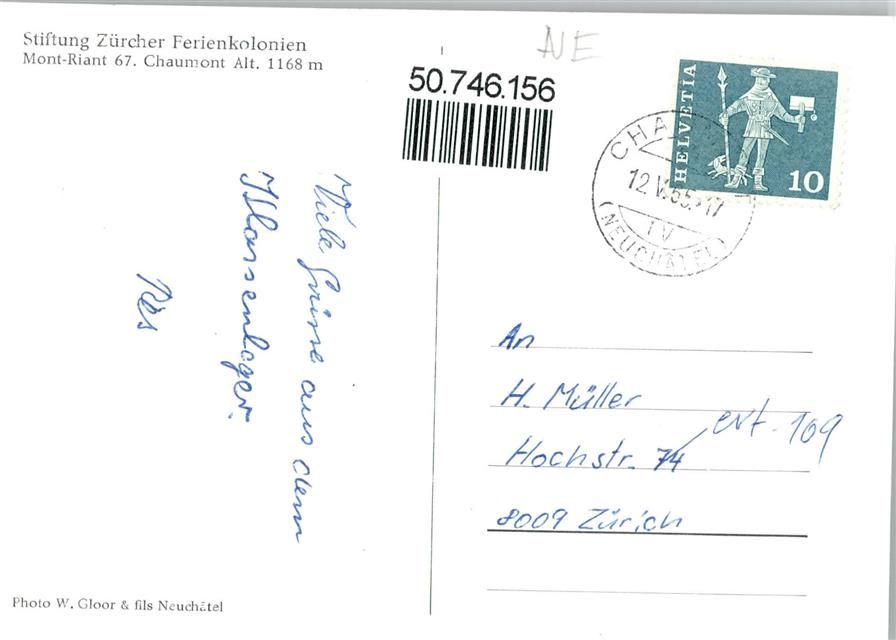 Stiftung Zürcher Ferienkolonien
Mont-Riant 67. Chaumont Alt. 1168 m
NE
50.746.156
HELVETIA
10
CHA
12.V.65.-17
IV
(NEUCHÂTEL)
Viele Grüsse aus dem
Klassenlager.
Res
An
H. Müller
Hochstr. 74 evt. 109
8009 Zürich
Photo W. Gloor & fils Neuchâtel